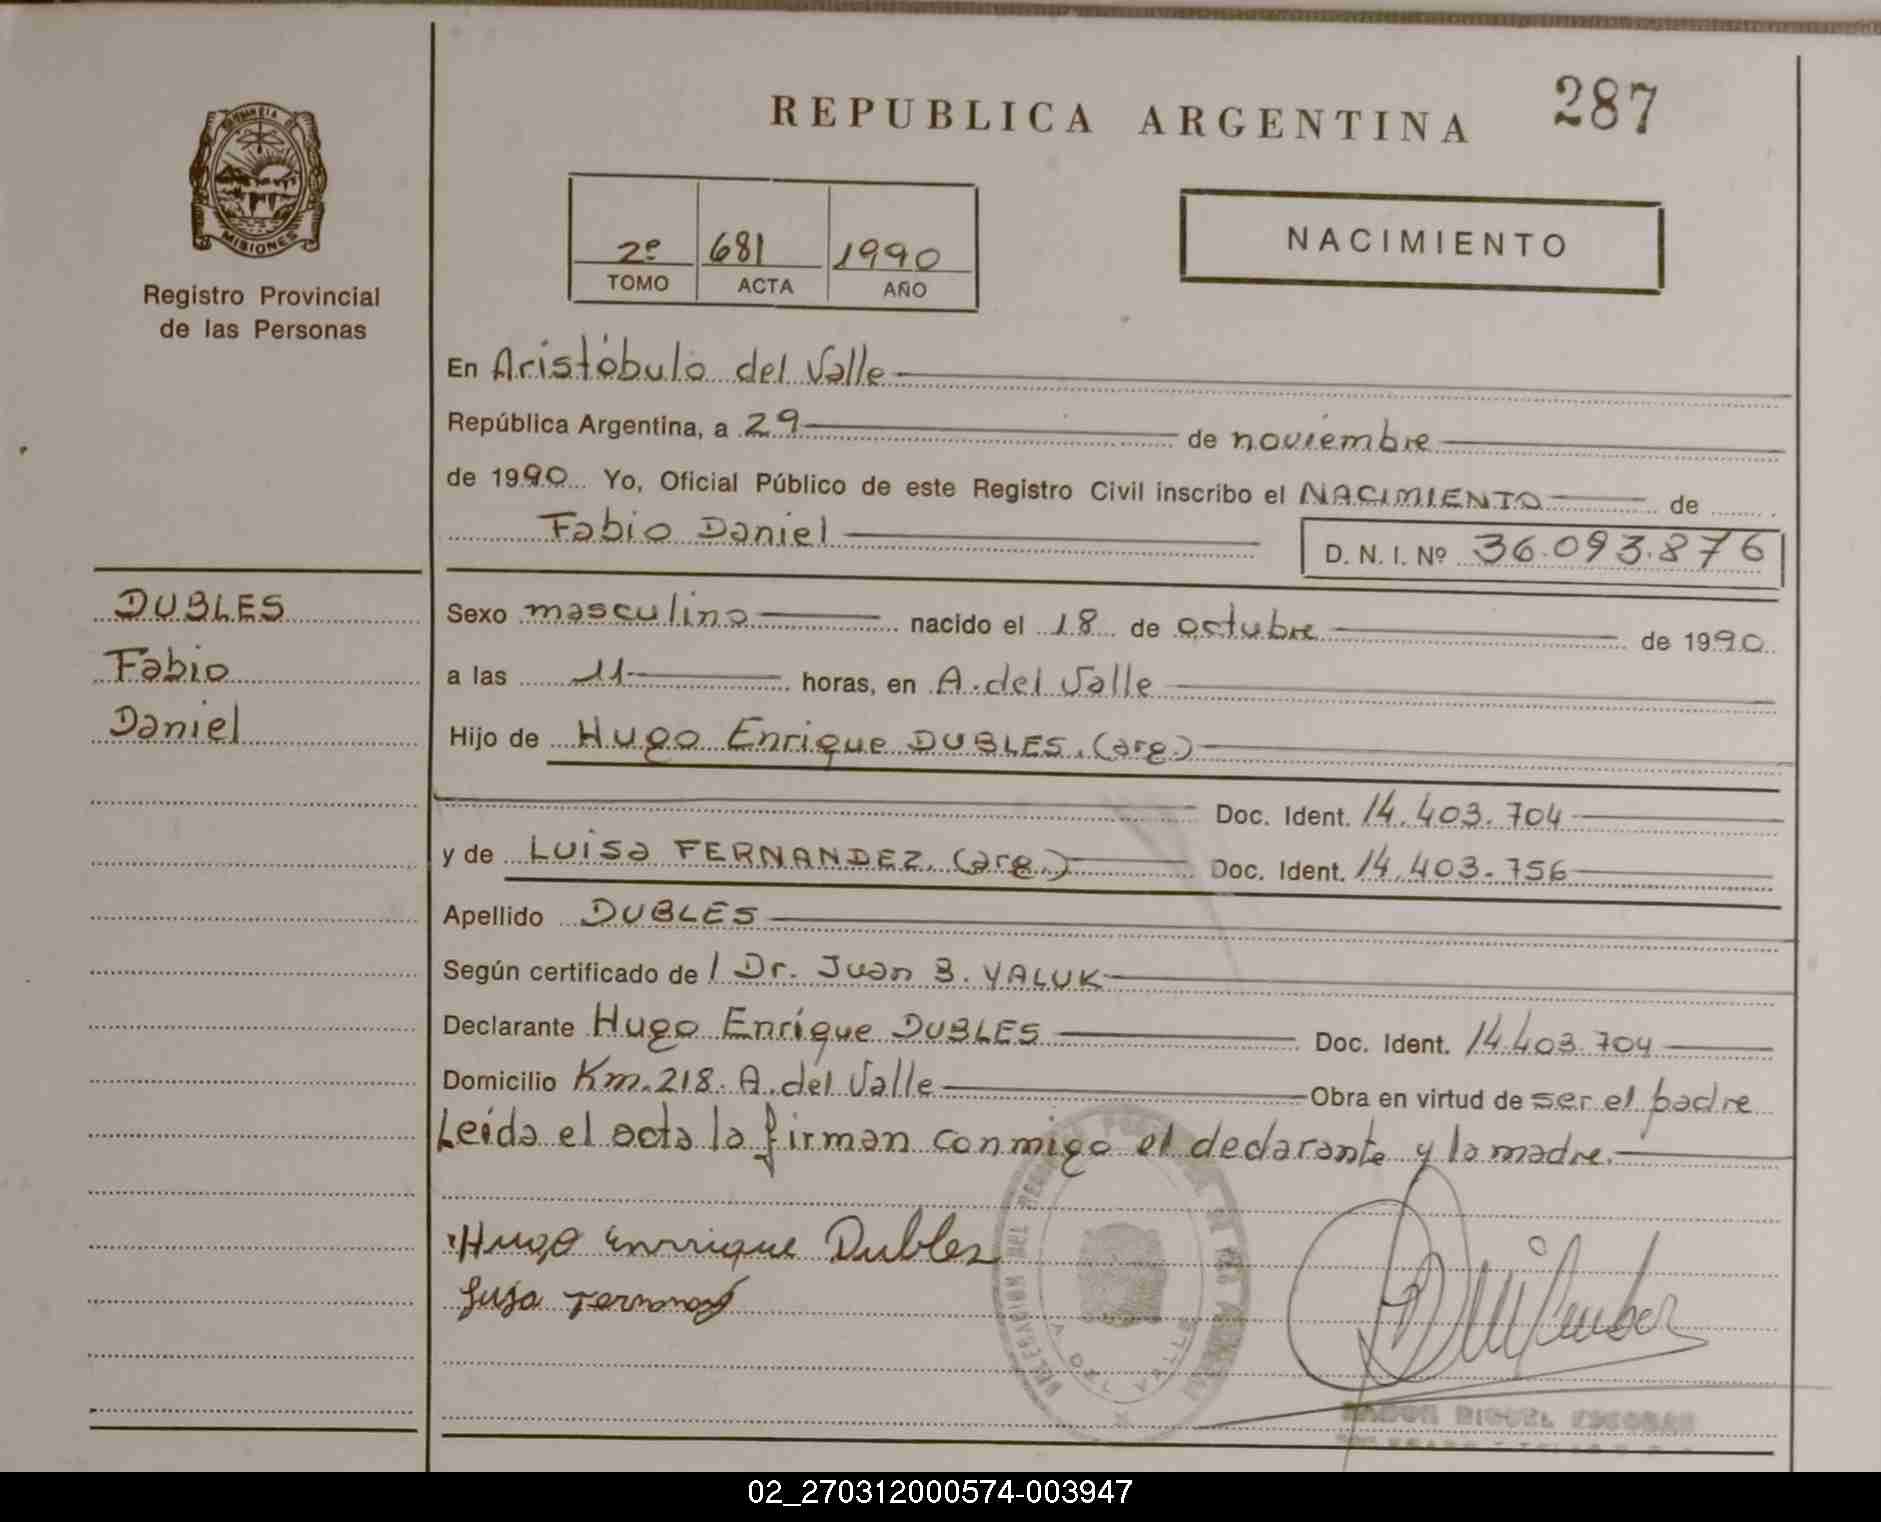 REPUBLICA ARGENTINA 287
PROVINCIA DE
MISIONES
Registro Provincial
de las Personas
2º 681 1990
TOMO ACTA AÑO
NACIMIENTO
En Aristóbulo del Valle
República Argentina, a 29 de noviembre
de 1990 Yo, Oficial Público de este Registro Civil inscribo el NACIMIENTO de
Fabio Daniel D. N. I. Nº 36.093.876
DUBLES
Fabio
Daniel
Sexo masculino nacido el 18 de octubre de 1990
a las 11 horas, en A. del Valle
Hijo de Hugo Enrique DUBLES. (arg.)
Doc. Ident. 14.403.704
y de LUISA FERNANDEZ. (arg.) Doc. Ident. 14.403.756
Apellido DUBLES
Según certificado de / Dr. Juan B. YALUK
Declarante Hugo Enrique DUBLES Doc. Ident. 14.403.704
Domicilio Km. 218. A. del Valle Obra en virtud de ser el padre
Leída el acta la firman conmigo el declarante y la madre.
Hugo Enrrique Dubles
DELEGACION DEL REGISTRO
DEL VALLE
RAMON MIGUEL ESCOBAR
02_270312000574-003947